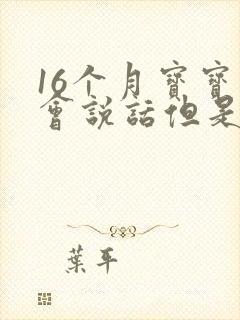 16个月寶寶
會説話但是
葉平